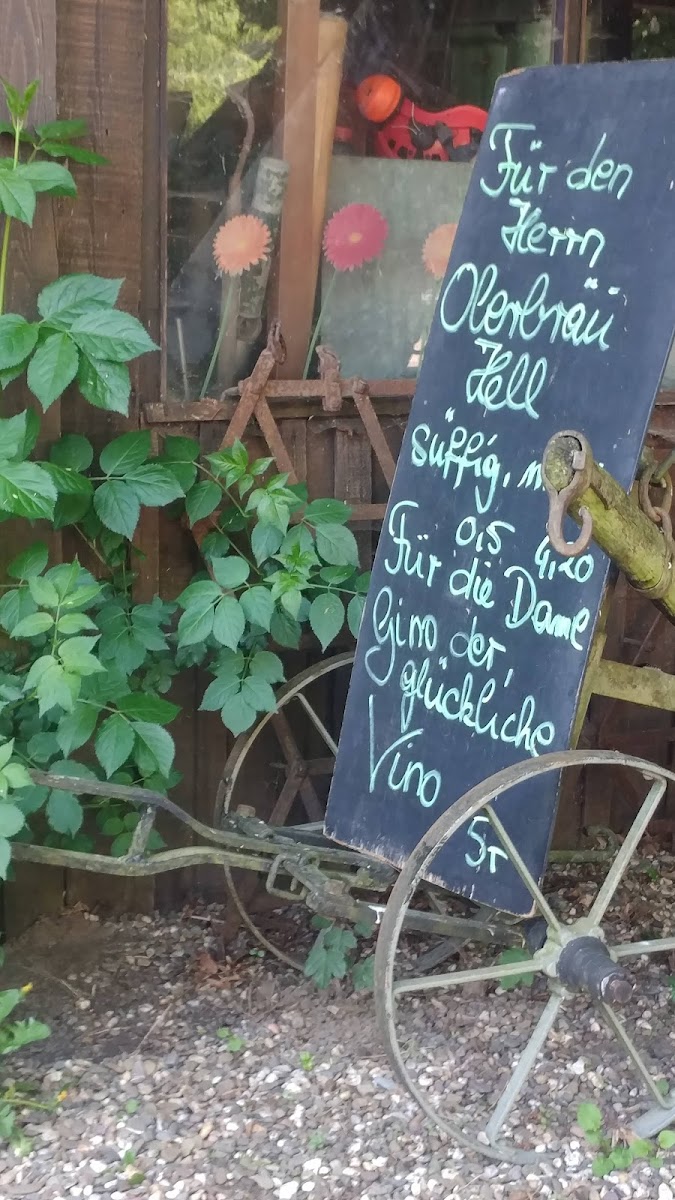 Für den
Herrn
Oberbräu
Hell
süffig,
0,5 4,20
Für die Dame
Gino der
glückliche
Vino
5,-